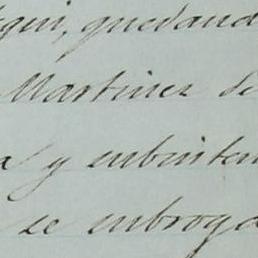 aqui, quedand
Martinez de
a y subinten
se subroga